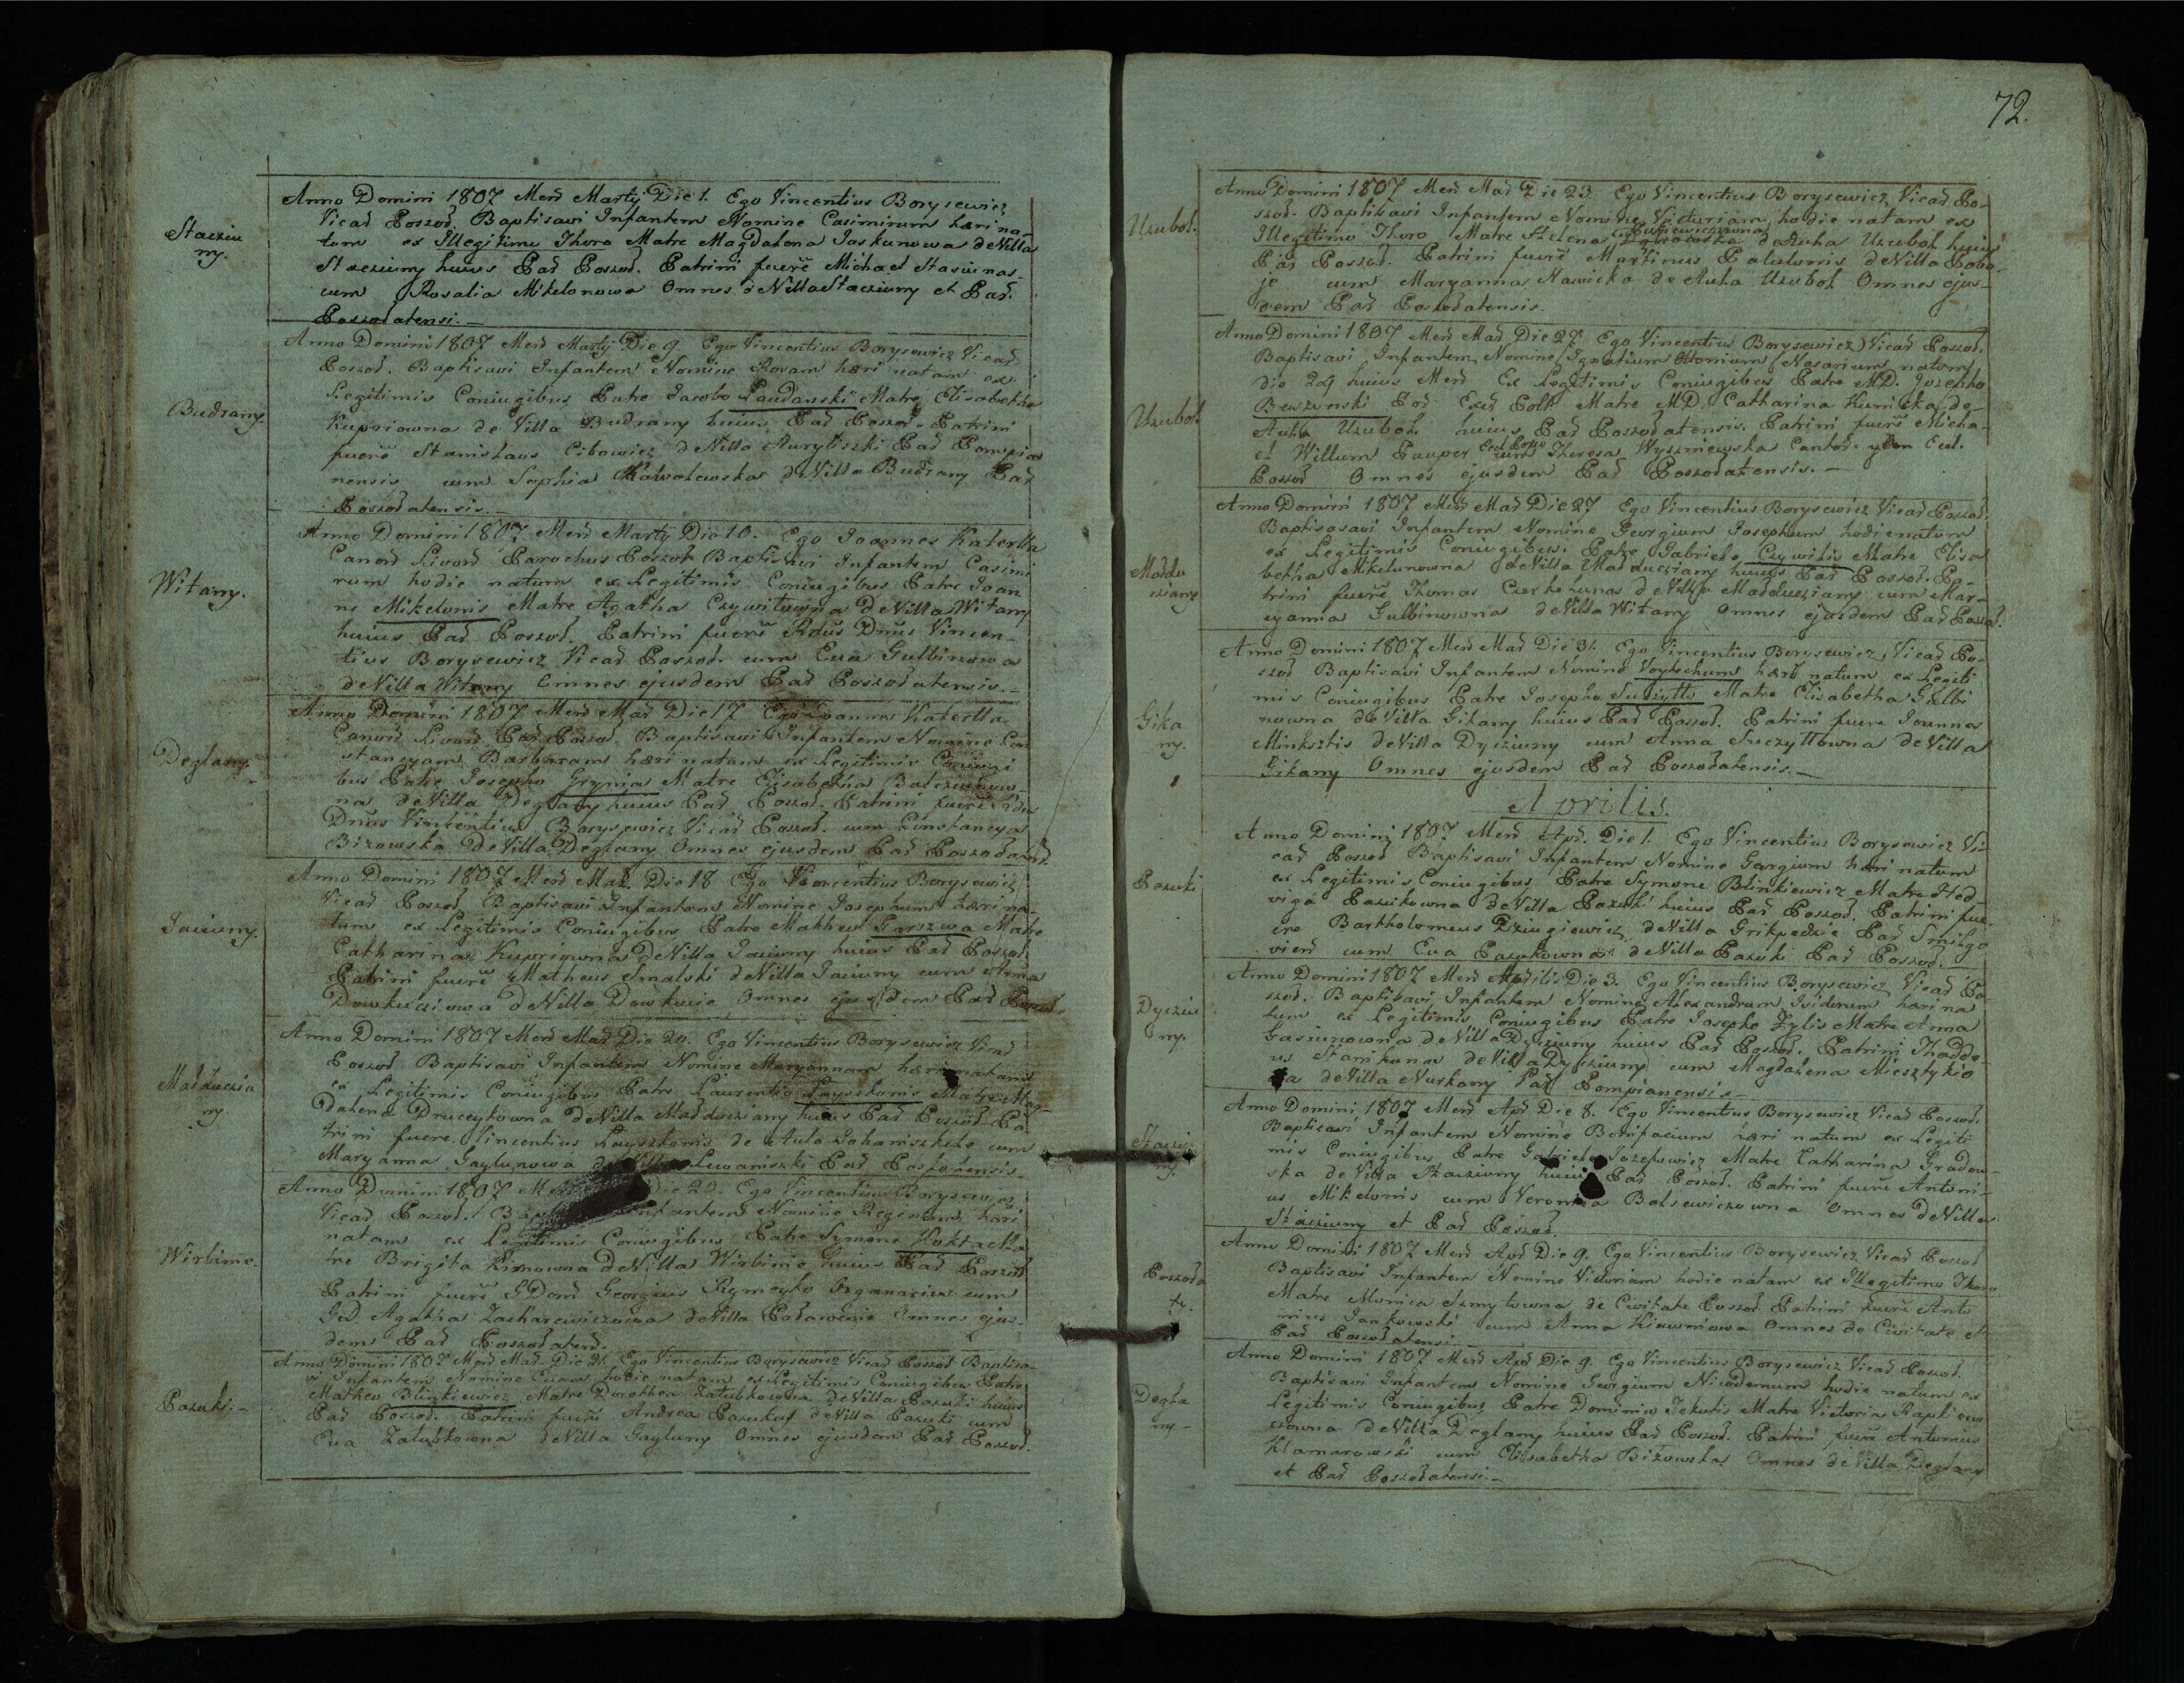 Stacziu
ny.
Anno Domini 1807 Mens Martij Die 1. Ego Vincentius Borysewicz
Vicar Poszoł. Baptisavi Infantem Nomine Casimirum hæri na-
tum ex Illegitimo Thoro Matre Magdalena Jaskunowa de Villa
Stacziuny huius Par Poszoł. Patrini fuere Michael Stasiunas
cum Rosalia Mikelonowa Omnes de Villa Stacziuny et Par.
Poszołatensi.—
Budrany.
Anno Domini 1807 Mens Martij Die 9. Ego Vincentius Borysewicz Vicar
Poszoł. Baptisavi Infantem Nomine Rosam hæri natam ex
Legitimis Coniugibus Patre Jacobo Laudanski Matre Elisabetha
Kupriowna de Villa Budrany huius Par Poszoł. Patrini
fuere Stanislaus Cibowicz de Villa Auryliszki Par Pompia
nensis cum Sophia de Villa Budrany Par
Poszołatensis.—
Witany.
Anno Domini 1807 Mens Martij Die 10. Ego Joannes Katerlla
Canon Livon Parochus Poszoł Baptisavi Infantem Casimi
rum hodie natum ex Legitimis Coniugibus Patre Joan
ne Mikelonis Matre Agatha Czywitowna de Villa Witany
huius Par Poszoł. Patrini fuere Rdus Dnus Vincen-
tius Borysewicz Vicar Poszoł. cum Eva Gulbinowa
de Villa Witany Omnes ejusdem Par Poszołatensis.—
Deglany.
Anno Domini 1807 Mens Mar Die 17 Ego Joannes Katerlla
Canon Livon Par Poszoł. Baptisavi Infantem Nomine Con
stancyam Barbaram hæri natam ex Legitimis Coniugi
bus Patre Josepho Grynia Matre Elisabetha Balcziunow-
na de Villa Deglany huius Par Poszoł. Patrini fuere Rdus
Dnus Vincentius Borysewicz Vicar Poszoł. cum Constancya
Bizowska de Villa Deglany Omnes ejusdem Par Poszołaten.
Jaiuny.
Anno Domini 1807 Mens Mar. Die 18 Ego Vincentius Borysewicz
Vicar Poszoł. Baptisavi Infantem Nomine Josephum hæri na-
tum ex Legitimis Coniugibus Patre Matheo Garszwa Matre
Catharina Kupriowna de Villa Jaiuny huius Par Poszoł.
Patrini fuere Matheus Smalski de Villa Jaiuny cum Anna
de Villa Dowkucie Omnes ejusdem Par Poszoł.
Małduczia
ny
Anno Domini 1807 Mens Mar Die 20. Ego Vincentius Borysewicz Vicar
Poszoł Baptisavi Infantem Nomine Maryannam hæri natam
ex Legitimis Coniugibus Patre Laurentio Matre Mag-
dalena Druceykowna de Villa Małducziany huius Par Poszoł Pa-
trini fuere Vincentius de Aula Johaniszkele cum
Maryanna Gaylunowa de Villa Lewaniszki Par
Wirbinie.
Anno Domini 1807 Mens Die 20. Ego Vincentius Borysewicz
Vicar Poszoł. Baptisavi Infantem Nomine Reginam hæri
natam ex Legitimis Coniugibus Patre Symone Ma
tre Brigita de Villa Wirbinie huius Par Poszoł
Patrini fuere GDom Georgius Rymeyko Organarius cum
GD. Agatha Zacharewiczowa de Villa Poławenie Omnes ejus-
dem Par Poszołaten.
Pazuki.—
Anno Domini 1807 Mens Mar. Die 21. Ego Vincentius Borysewicz Vicar Poszoł Baptisa-
vi Infantem Nomine Evam hodie natam ex Legitimis Coniugibus Patre
Matheo Blinkiewicz Matre Dorothea Załubkowna de Villa Pazuki huius
Par Poszoł. Patrini fuere Andrea Pazukas de Villa Pazuki cum
Eva Załubkowna de Villa Gayluny Omnes ejusdem Par Poszoł.
72.
Uzuboł.
Anno Domini 1807 Mens Mar Die 23. Ego Vincentius Borysewicz Vicar Po-
szoł. Baptisavi Infantem Nomine Victoriam hodie natam ex
Illegitimo Thoro Matre Helena de Aula Uzuboł huius
Par Poszoł. Patrini fuere Martinus de Villa Pobo-
je cum Maryanna Nawicka de Aula Uzuboł Omnes ejus-
dem Par Poszołatensis.
Uzuboł.
Anno Domini 1807 Mens Mar Die 27. Ego Vincentius Borysewicz Vicar Poszoł.
Baptisavi Infantem Nomine Ignatium Nasarium natum
die 24 huius Mens Ex Legitimis Coniugibus Patre MD. Josepho
Matre MD. Catharina de
Aula Uzuboł huius Par Poszołatensis. Patrini fuere Micha-
el Willum Pauper cum Theresa Wyszniewska Cantor. Eccl.
Poszoł Omnes ejusdem Par Poszołatensis.—
Małdu
cziany
Anno Domini 1807 Mens Mar Die 27 Ego Vincentius Borysewicz Vicar Poszoł.
Baptisavi Infantem Nomine Georgium Josephum hodie natum
ex Legitimis Coniugibus. Patre Gabriele Czywilis Matre Elisa
betha Mikelunowna de Villa Małducziany huius Par Poszoł. Pa-
trini fuere Thomas de Villa Małducziany cum Mar-
yanna Gulbinowna de Villa Witany Omnes ejusdem Par Poszoł.
Gika
ny.
Anno Domini 1807 Mens Mar Die 31. Ego Vincentius Borysewicz Vicar Po-
szoł Baptisavi Infantem Nomine Woytechum hæri natum ex Legiti
mis Coniugibus Patre Josepho Suczytto Matre Elisabetha Gulbi
nowna de Villa Gikany huius Par Poszoł. Patrini fuere Joannes
Minksztis de Villa Dycziuny cum Anna Suczyttowna de Villa
Gikany Omnes ejusdem Par Poszołatensis.—
Aprilis.
Pazuki
Anno Domini 1807 Mens Apr. Die 1. Ego Vincentius Borysewicz Vi-
car Poszoł Baptisavi Infantem Nomine Gorgium hæri natum
ex Legitimis Coniugibus Patre Symone Blinkiewicz Matre Hed-
viga Pazukowna de Villa Pazuki huius Par Poszoł. Patrini fue-
re Bartholomeus de Villa Grikpedzie Par Smilgo
vien cum Eva Pazukowna de Villa Pazuki Par Poszoł.
Dycziu
ny.
Anno Domini 1807 Mens Aprilis Die 3. Ego Vincentius Borysewicz Vicar Po-
szoł. Baptisavi Infantem Nomine Alexandrum Isidorum hæri na
tum ex Legitimis Coniugibus Patre Josepho Zylis Matre Anna
Gasiunowna de Villa Dycziuny huius Par Poszoł. Patrini Thadde-
us Stanikunas de Villa Dycziuny cum Magdalena
de Villa Nurkany Par Pompianensis.—
Stacziu
ny.
Anno Domini 1807 Mens Apr Die 8. Ego Vincentius Borysewicz Vicar Poszoł.
Baptisavi Infantem Nomine Bonifacium hæri natum ex Legiti
mis Coniugibus Patre Gabriele Jozefowicz Matre Catharina Gradow-
ska de Villa Stacziuny huius Par Poszoł. Patrini fuere Antoni-
us Mikelonis cum Veronica Balsewiczowna Omnes de Villa
Stacziuny et Par Poszoł.
Poszoła
ty.
Anno Domini 1807 Mens Apr Die 9. Ego Vincentius Borysewicz Vicar Poszoł
Baptisavi Infantem Nomine Victoriam hodie natam ex Illegitimo Thoro
Matre Monica Szmytowna de Civitate Poszoł. Patrini fuere Anto
nius Jankowski cum Anna Omnes de Civitate et
Par Poszołatensi.
Degla
ny.—
Anno Domini 1807 Mens Apr Die 9. Ego Vincentius Borysewicz Vicar Poszoł.
Baptisavi Infantem Nomine Georgium Nicodemum hodie natum ex
Legitimis Coniugibus Patre Dominico Matre Victoria
de Villa Deglany huius Par Poszoł. Patrini fuere Antonius
Klamarowski cum Elisabetha Bizowska Omnes de Villa Deglany
et Par Poszołatensi.—